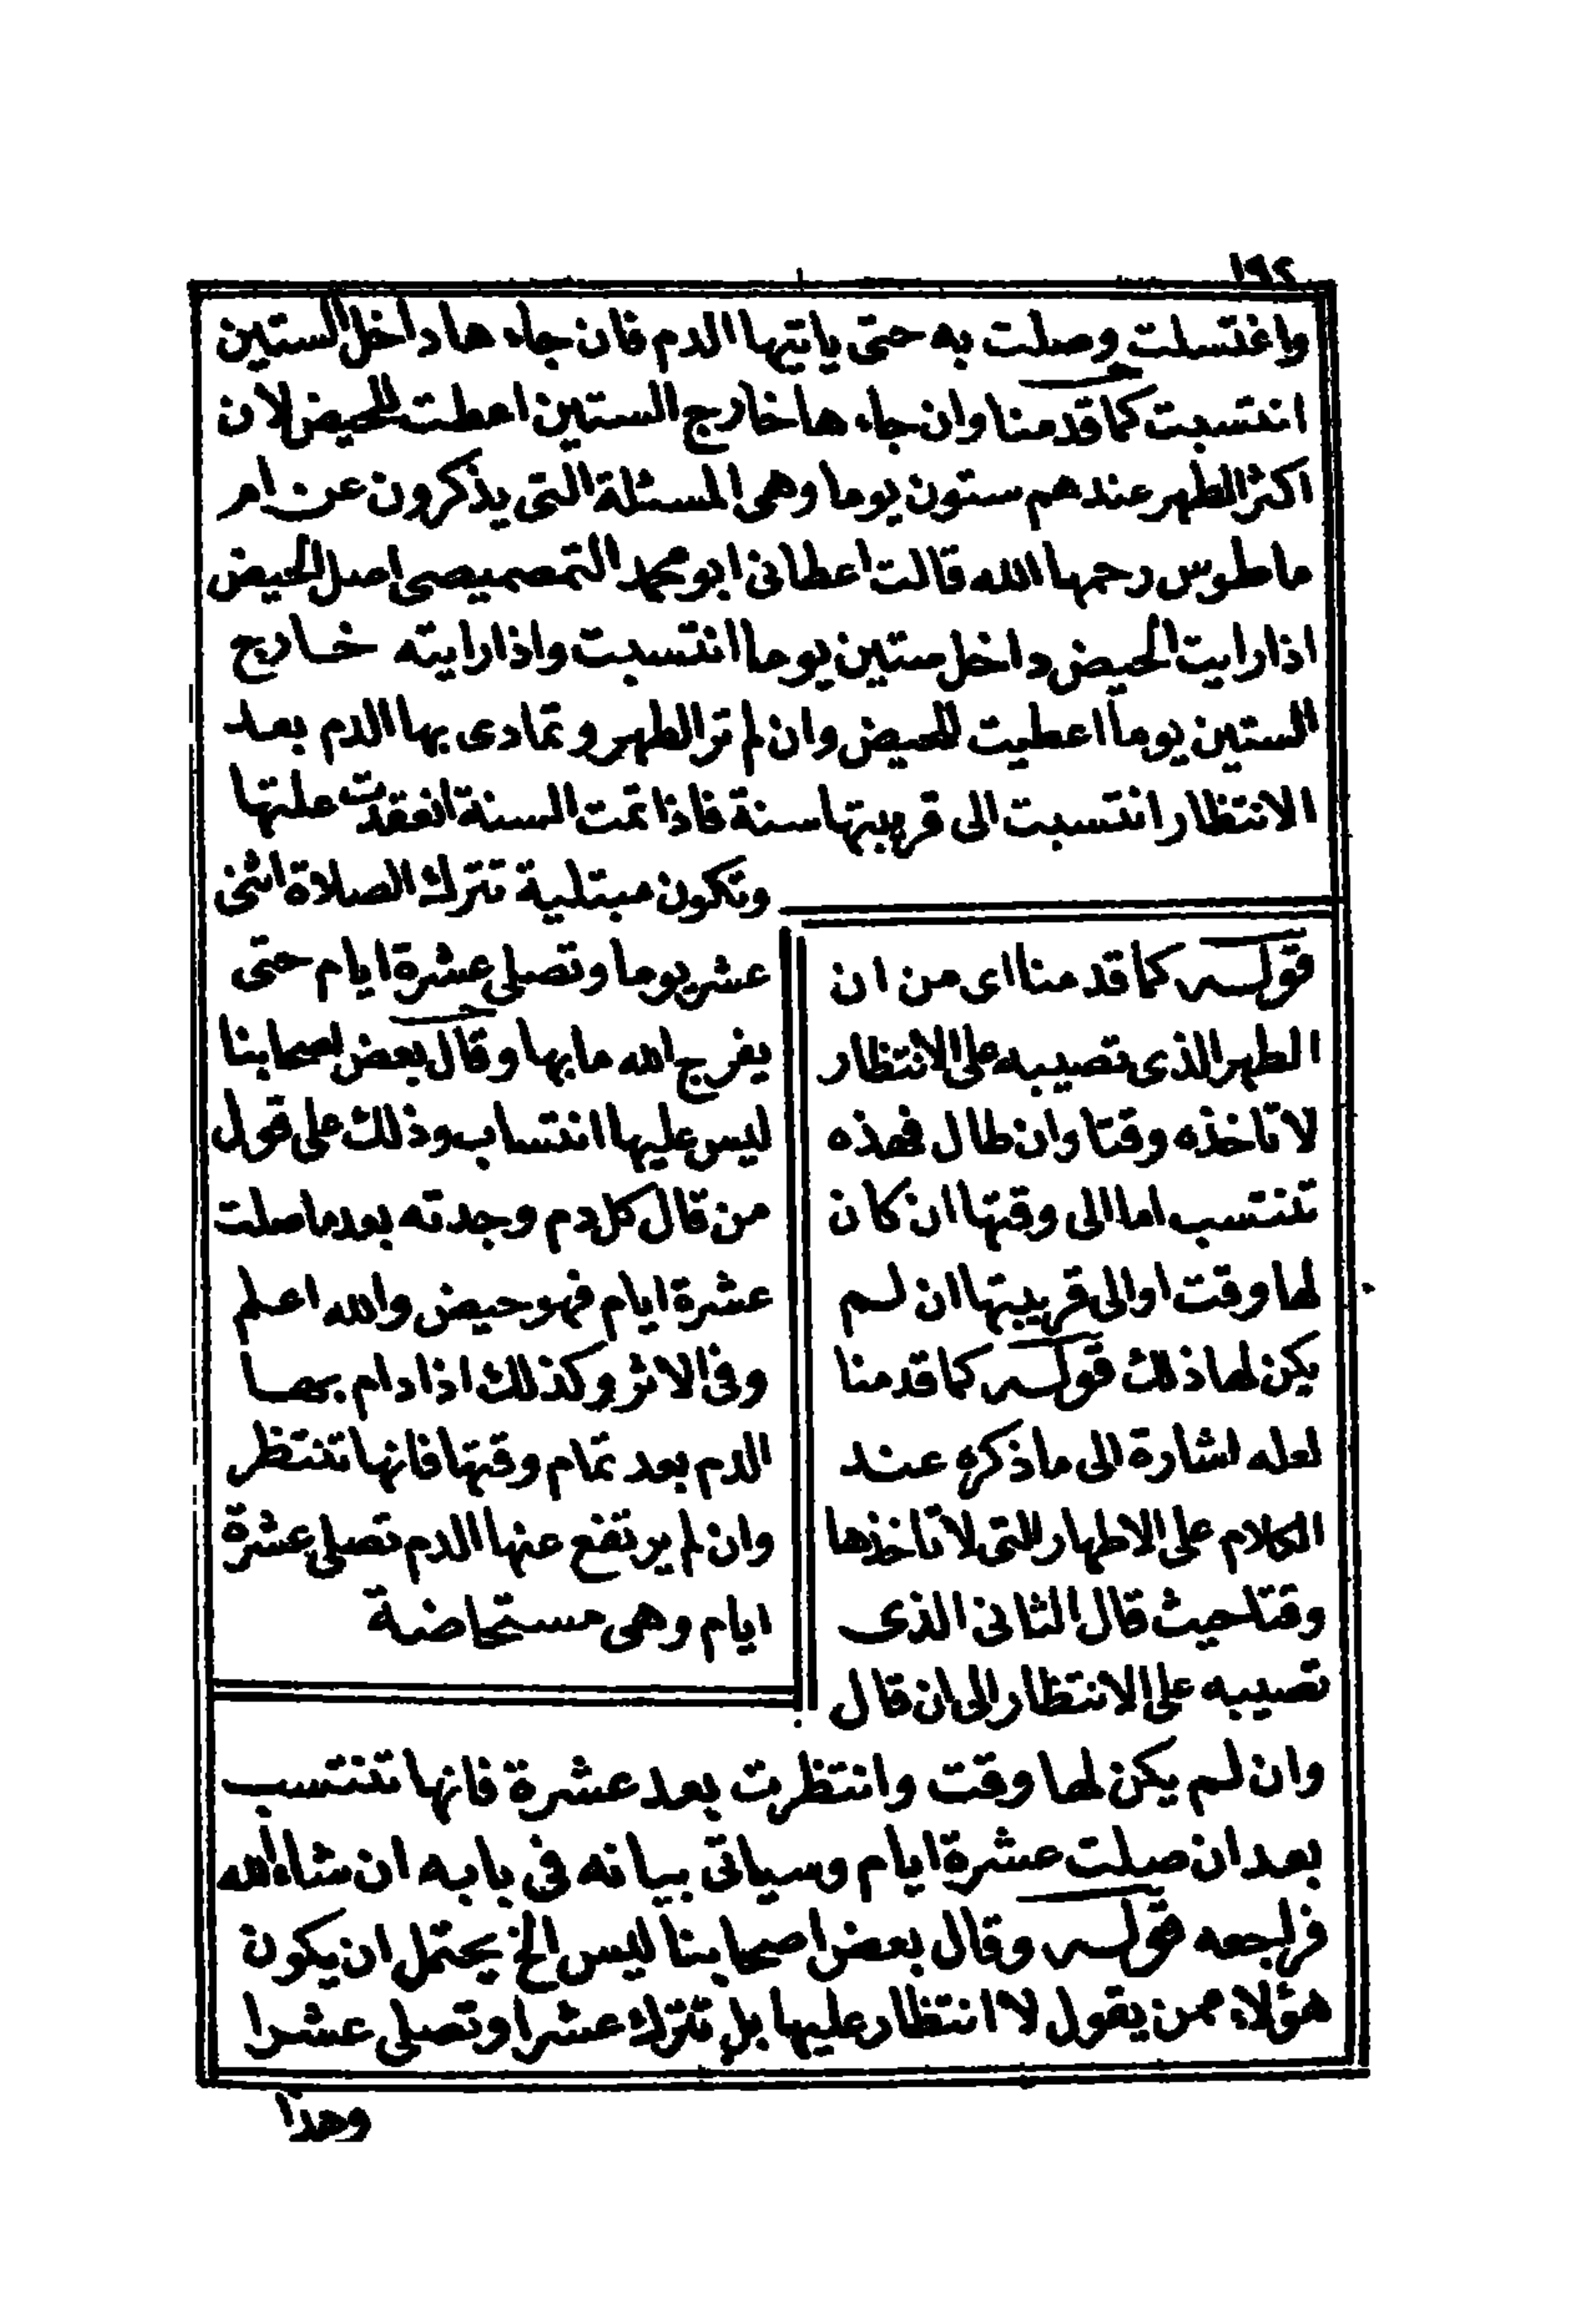 ١٩٤
واغتسلت وصلت به حتى ياتيها الدم فان جاءها داخل الستين
انتسبت كما قدمنا وان جاءها خارج الستين اعطت للحيض لان
اكثر الطهر عندهم ستون يوما وهى المسئلة التى يذكرون عن ام
ماطوس رحمها الله قالت اعطانى ابو محمد التمصميصى اصل الحيض
اذا رايت الحيض داخل ستين يوما انتسبت واذا رايته خارج
الستين يوما اعطيت للحيض وان لم تر الطهر وتمادى بها الدم بعد
الانتظار انتسبت الى قريبتها سنة فاذا تمت السنة انفقدت علتها
وتكون مبتلية تترك الصلاة اثنى
عشر يوما وتصلى عشرة ايام حتى
يفرج الله ما بها وقال بعض اصحابنا
ليس عليها انتساب وذلك على قول
من قال كل دم وجدته بعد ما صلت
عشرة ايام فهو حيض والله اعلم
وفى الاثر وكذلك اذا دام بها
الدم بعد تمام وقتها فانها تنتظر
وان لم يرتفع عنها الدم تصلى عشرة
ايام وهى مستحاضة
قوله كما قدمنا اى من ان
الطهر الذى تصيبه على الانتظار
لا تاخذه وقتا وان طال فهذه
تنتسب اما الى وقتها ان كان
لها وقت او الى قريبتها ان لم
يكن لها ذلك قوله كما قدمنا
لعله اشارة الى ما ذكره عند
الكلام على الاطهار التى لا تاخذها
وقتا حيث قال الثانى الذى
تصيبه على الانتظار الى ان قال
وان لم يكن لها وقت وانتظرت بعد عشرة فانها تنتسب
بعد ان صلت عشرة ايام وسياتى بيانه فى بابه ان شاء الله
فراجعه قوله وقال بعض اصحابنا ليس الخ يحتمل ان يكون
هؤلاء ممن يقول لا انتظار عليها بل تترك عشرا وتصلى عشرا
وهذا